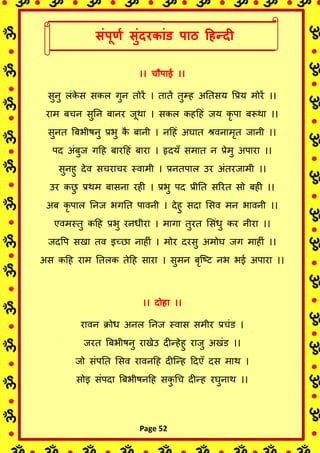 संपूर्ण सुंदरकांड पाठ हिन्दी
।। चौपाई ।।
सुनु लंकेस सकल गुन तोरें । तातें तुम्ह अतिसय प्रिय मोरें ।।
राम बचन सुनि बानर जूथा । सकल कहहिं जय कृपा बरूथा ।।
सुनत बिभीषनु प्रभु कै बानी । नहिं अघात श्रवनामृत जानी ।।
पद अंबुज गहि बारहिं बारा । हृदयँ समात न प्रेमु अपारा ।।
सुनहु देव सचराचर स्वामी । प्रनतपाल उर अंतरजामी ।।
उर कछु प्रथम बासना रही । प्रभु पद प्रीति सरित सो बही ।।
अब कृपाल निज भगति पावनी । देहु सदा सिव मन भावनी ।।
एवमस्तु कहि प्रभु रनधीरा । मागा तुरत सिंधु कर नीरा ।।
जदपि सखा तव इच्छा नाहीं । मोर दरसु अमोघ जग माहीं ।।
अस कहि राम तिलक तेहि सारा । सुमन बृष्टि नभ भई अपारा ।।
।। दोहा ।।
रावन क्रोध अनल निज स्वास समीर प्रचंड ।
जरत बिभीषनु राखेउ दीन्हेहु राजु अखंड ।।
जो संपति सिव रावनहि दीन्हि दिएँ दस माथ ।
सोइ संपदा बिभीषनहि सकुचि दीन्ह रघुनाथ ।।
Page 52